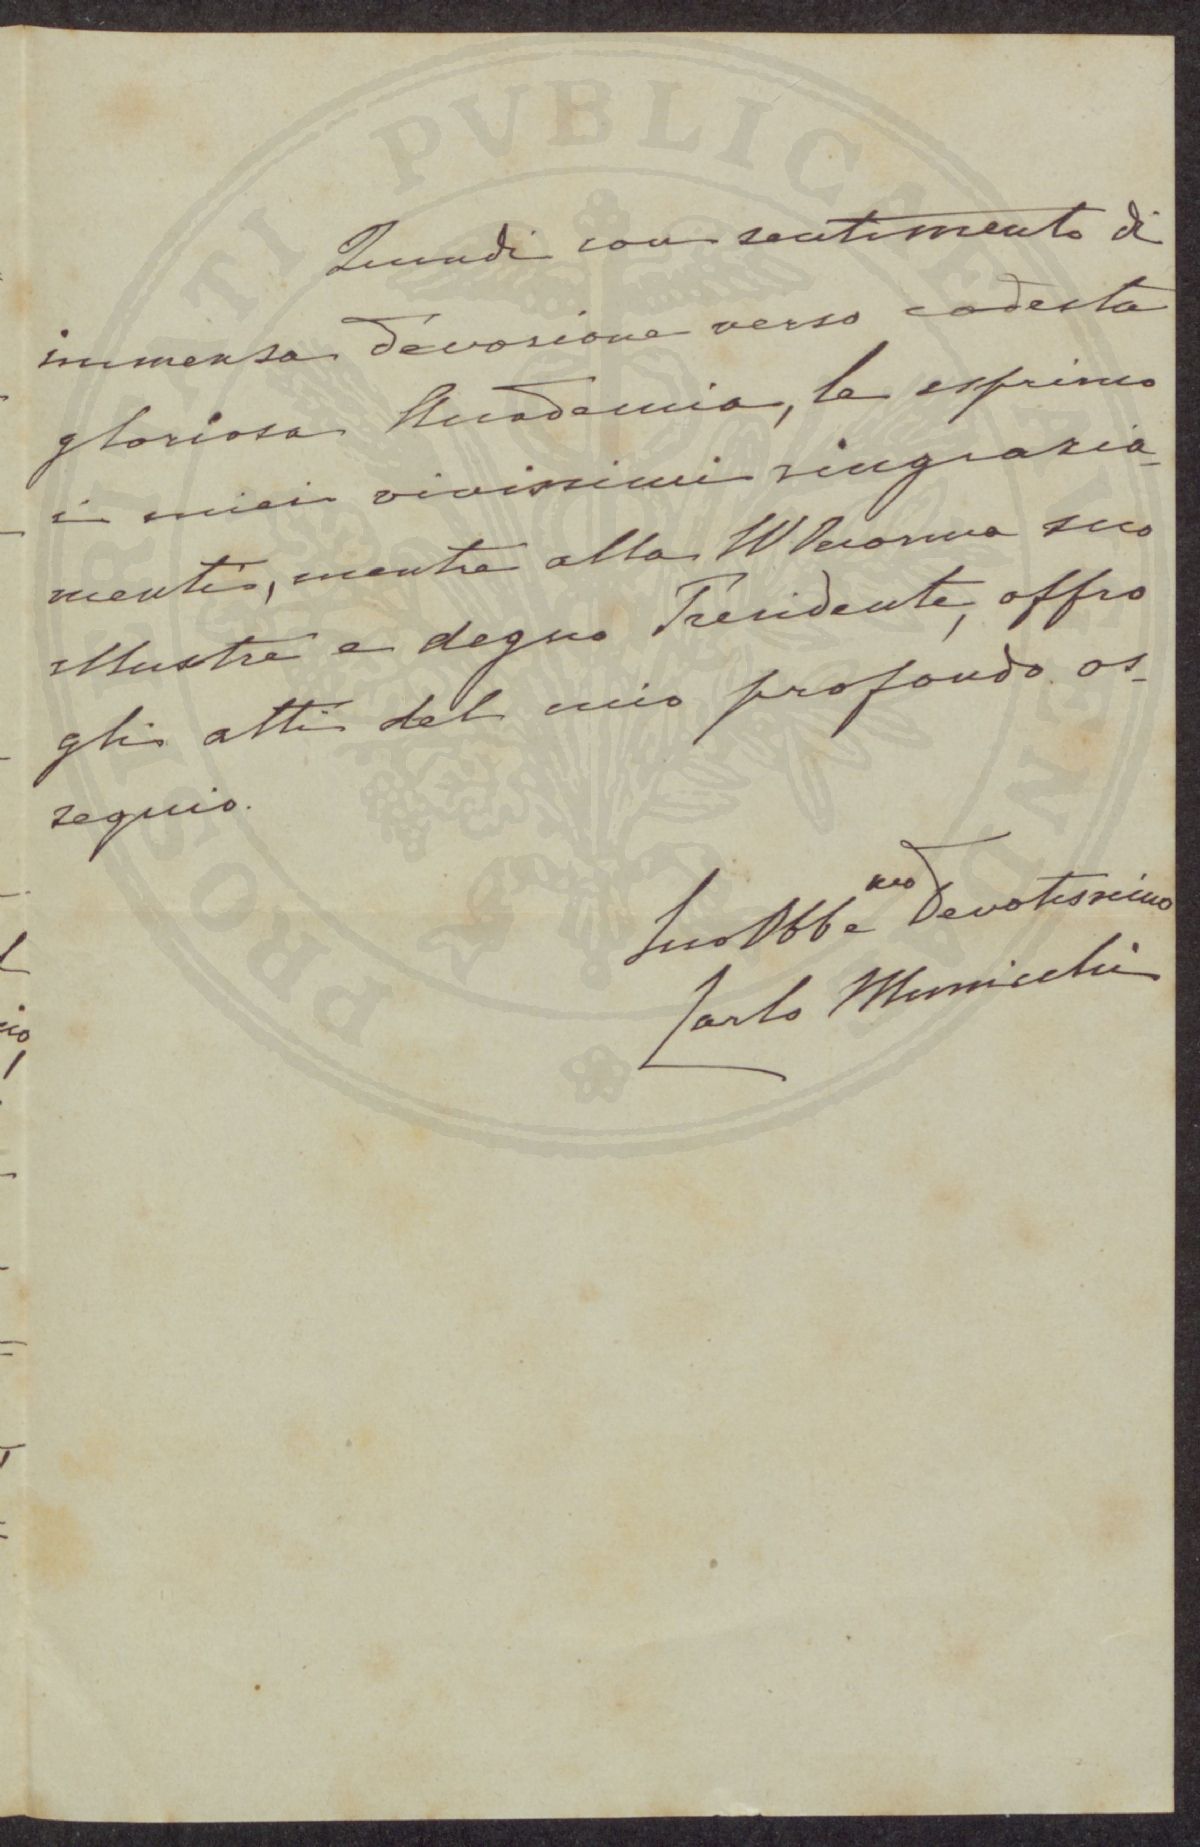 Quindi con sentimento di
immensa devozione verso codesta
gloriosa Accademia, le esprimo
i miei vivissimi ringrazia-
menti, mentre alla
suo
illustre e degno Presidente, offro
gli atti del mio profondo os-
sequio.
Suo Obbe mo Devotissimo
Carlo Municchi
PROSPERITATI PVBLICAE AVGENDAE